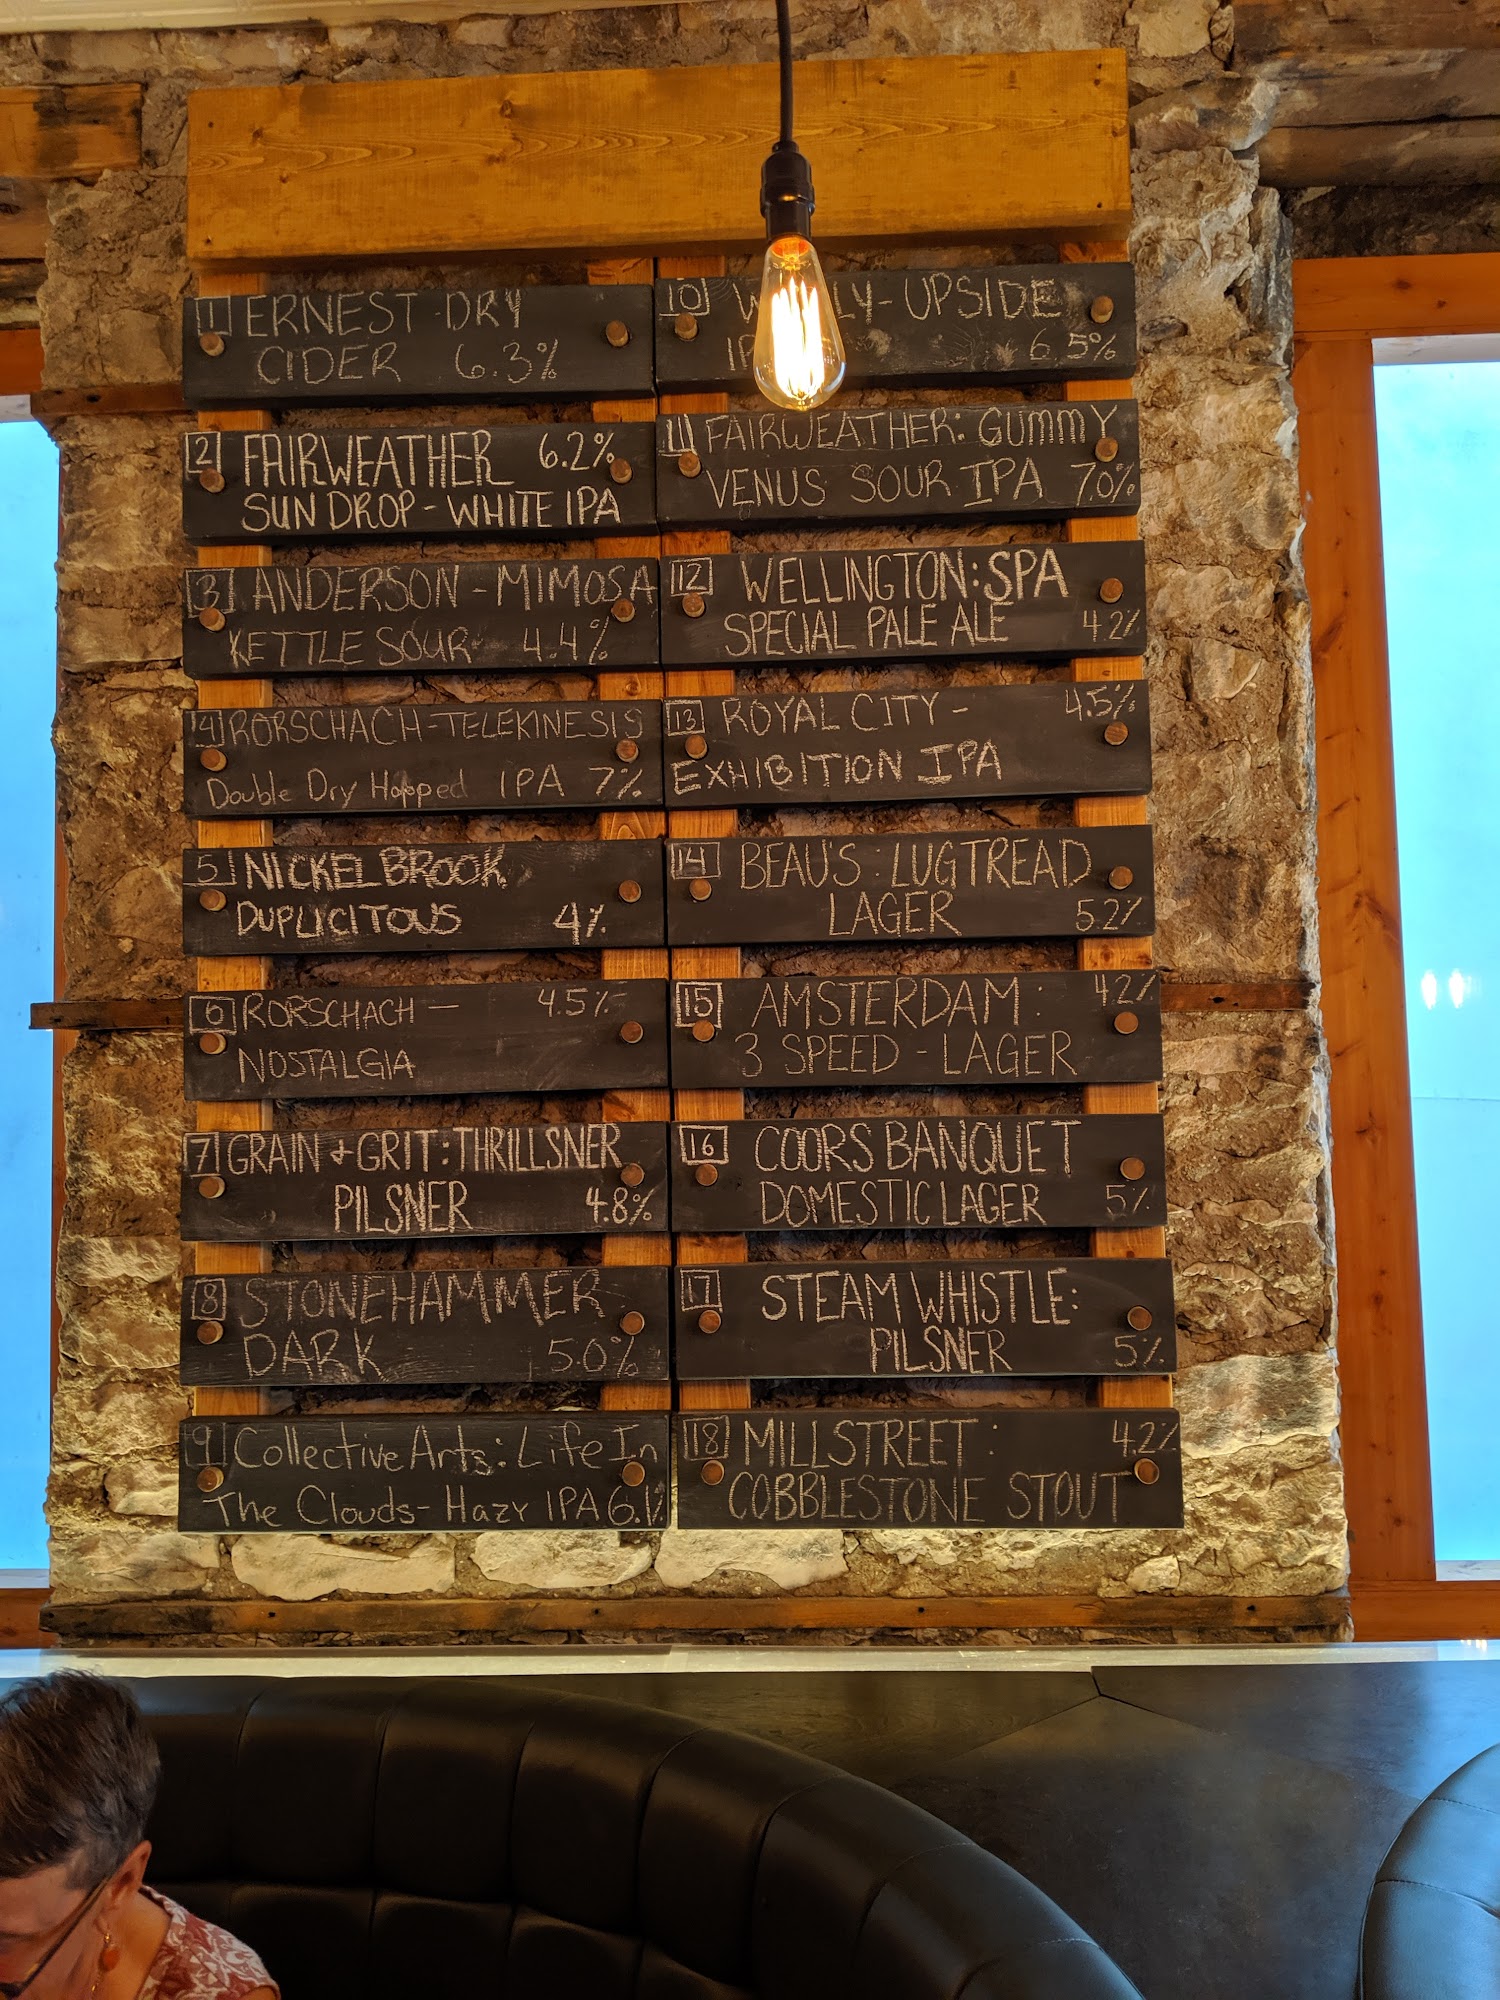 1 ERNEST DRY
CIDER 6.3%
2 FAIRWEATHER 6.2%
SUN DROP - WHITE IPA
3 ANDERSON - MIMOSA
KETTLE SOUR 4.4%
4 RORSCHACH - TELEKINESIS
Double Dry Hopped IPA 7%
5 NICKEL BROOK
DUPLICITOUS 4%
6 RORSCHACH — 4.5%
NOSTALGIA
7 GRAIN + GRIT: THRILLSNER
PILSNER 4.8%
8 STONEHAMMER
DARK 5.0%
9 Collective Arts: Life In
The Clouds - Hazy IPA 6.1%
10 - UPSIDE
6.5%
11 FAIRWEATHER: GUMMY
VENUS SOUR IPA 7.0%
12 WELLINGTON: SPA
SPECIAL PALE ALE 4.2%
13 ROYAL CITY - 4.5%
EXHIBITION IPA
14 BEAU'S: LUGTREAD
LAGER 5.2%
15 AMSTERDAM: 4.2%
3 SPEED - LAGER
16 COORS BANQUET
DOMESTIC LAGER 5%
17 STEAM WHISTLE:
PILSNER 5%
18 MILLSTREET: 4.2%
COBBLESTONE STOUT